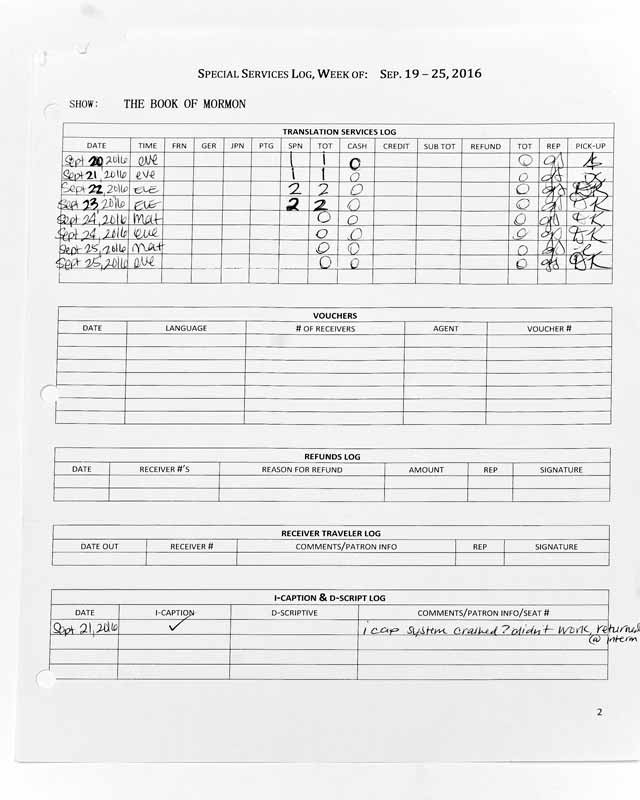 SPECIAL SERVICES LOG, WEEK OF: SEP. 19 – 25, 2016
SHOW: THE BOOK OF MORMON
TRANSLATION SERVICES LOG
DATE TIME FRN GER JPN PTG SPN TOT CASH CREDIT SUB TOT REFUND TOT REP PICK-UP
Sept 20 2016 eve 1 1 0 0
Sept 21, 2016 eve 1 1 0 0
Sept 22, 2016 EVE 2 2 0 0
Sept 23, 2016 EVE 2 2 0 0
Sept 24, 2016 mat 0 0 0
Sept 24, 2016 eve 0 0 0 DK
Sept 25, 2016 mat 0 0 0
Sept 25, 2016 eve 0 0 0 DK
VOUCHERS
DATE LANGUAGE # OF RECEIVERS AGENT VOUCHER #
REFUNDS LOG
DATE RECEIVER #'S REASON FOR REFUND AMOUNT REP SIGNATURE
RECEIVER TRAVELER LOG
DATE OUT RECEIVER # COMMENTS/PATRON INFO REP SIGNATURE
I-CAPTION & D-SCRIPT LOG
DATE I-CAPTION D-SCRIPTIVE COMMENTS/PATRON INFO/SEAT #
Sept 21, 2016 ✓ i cap system crashed? didn't work, returned
@ interm
2